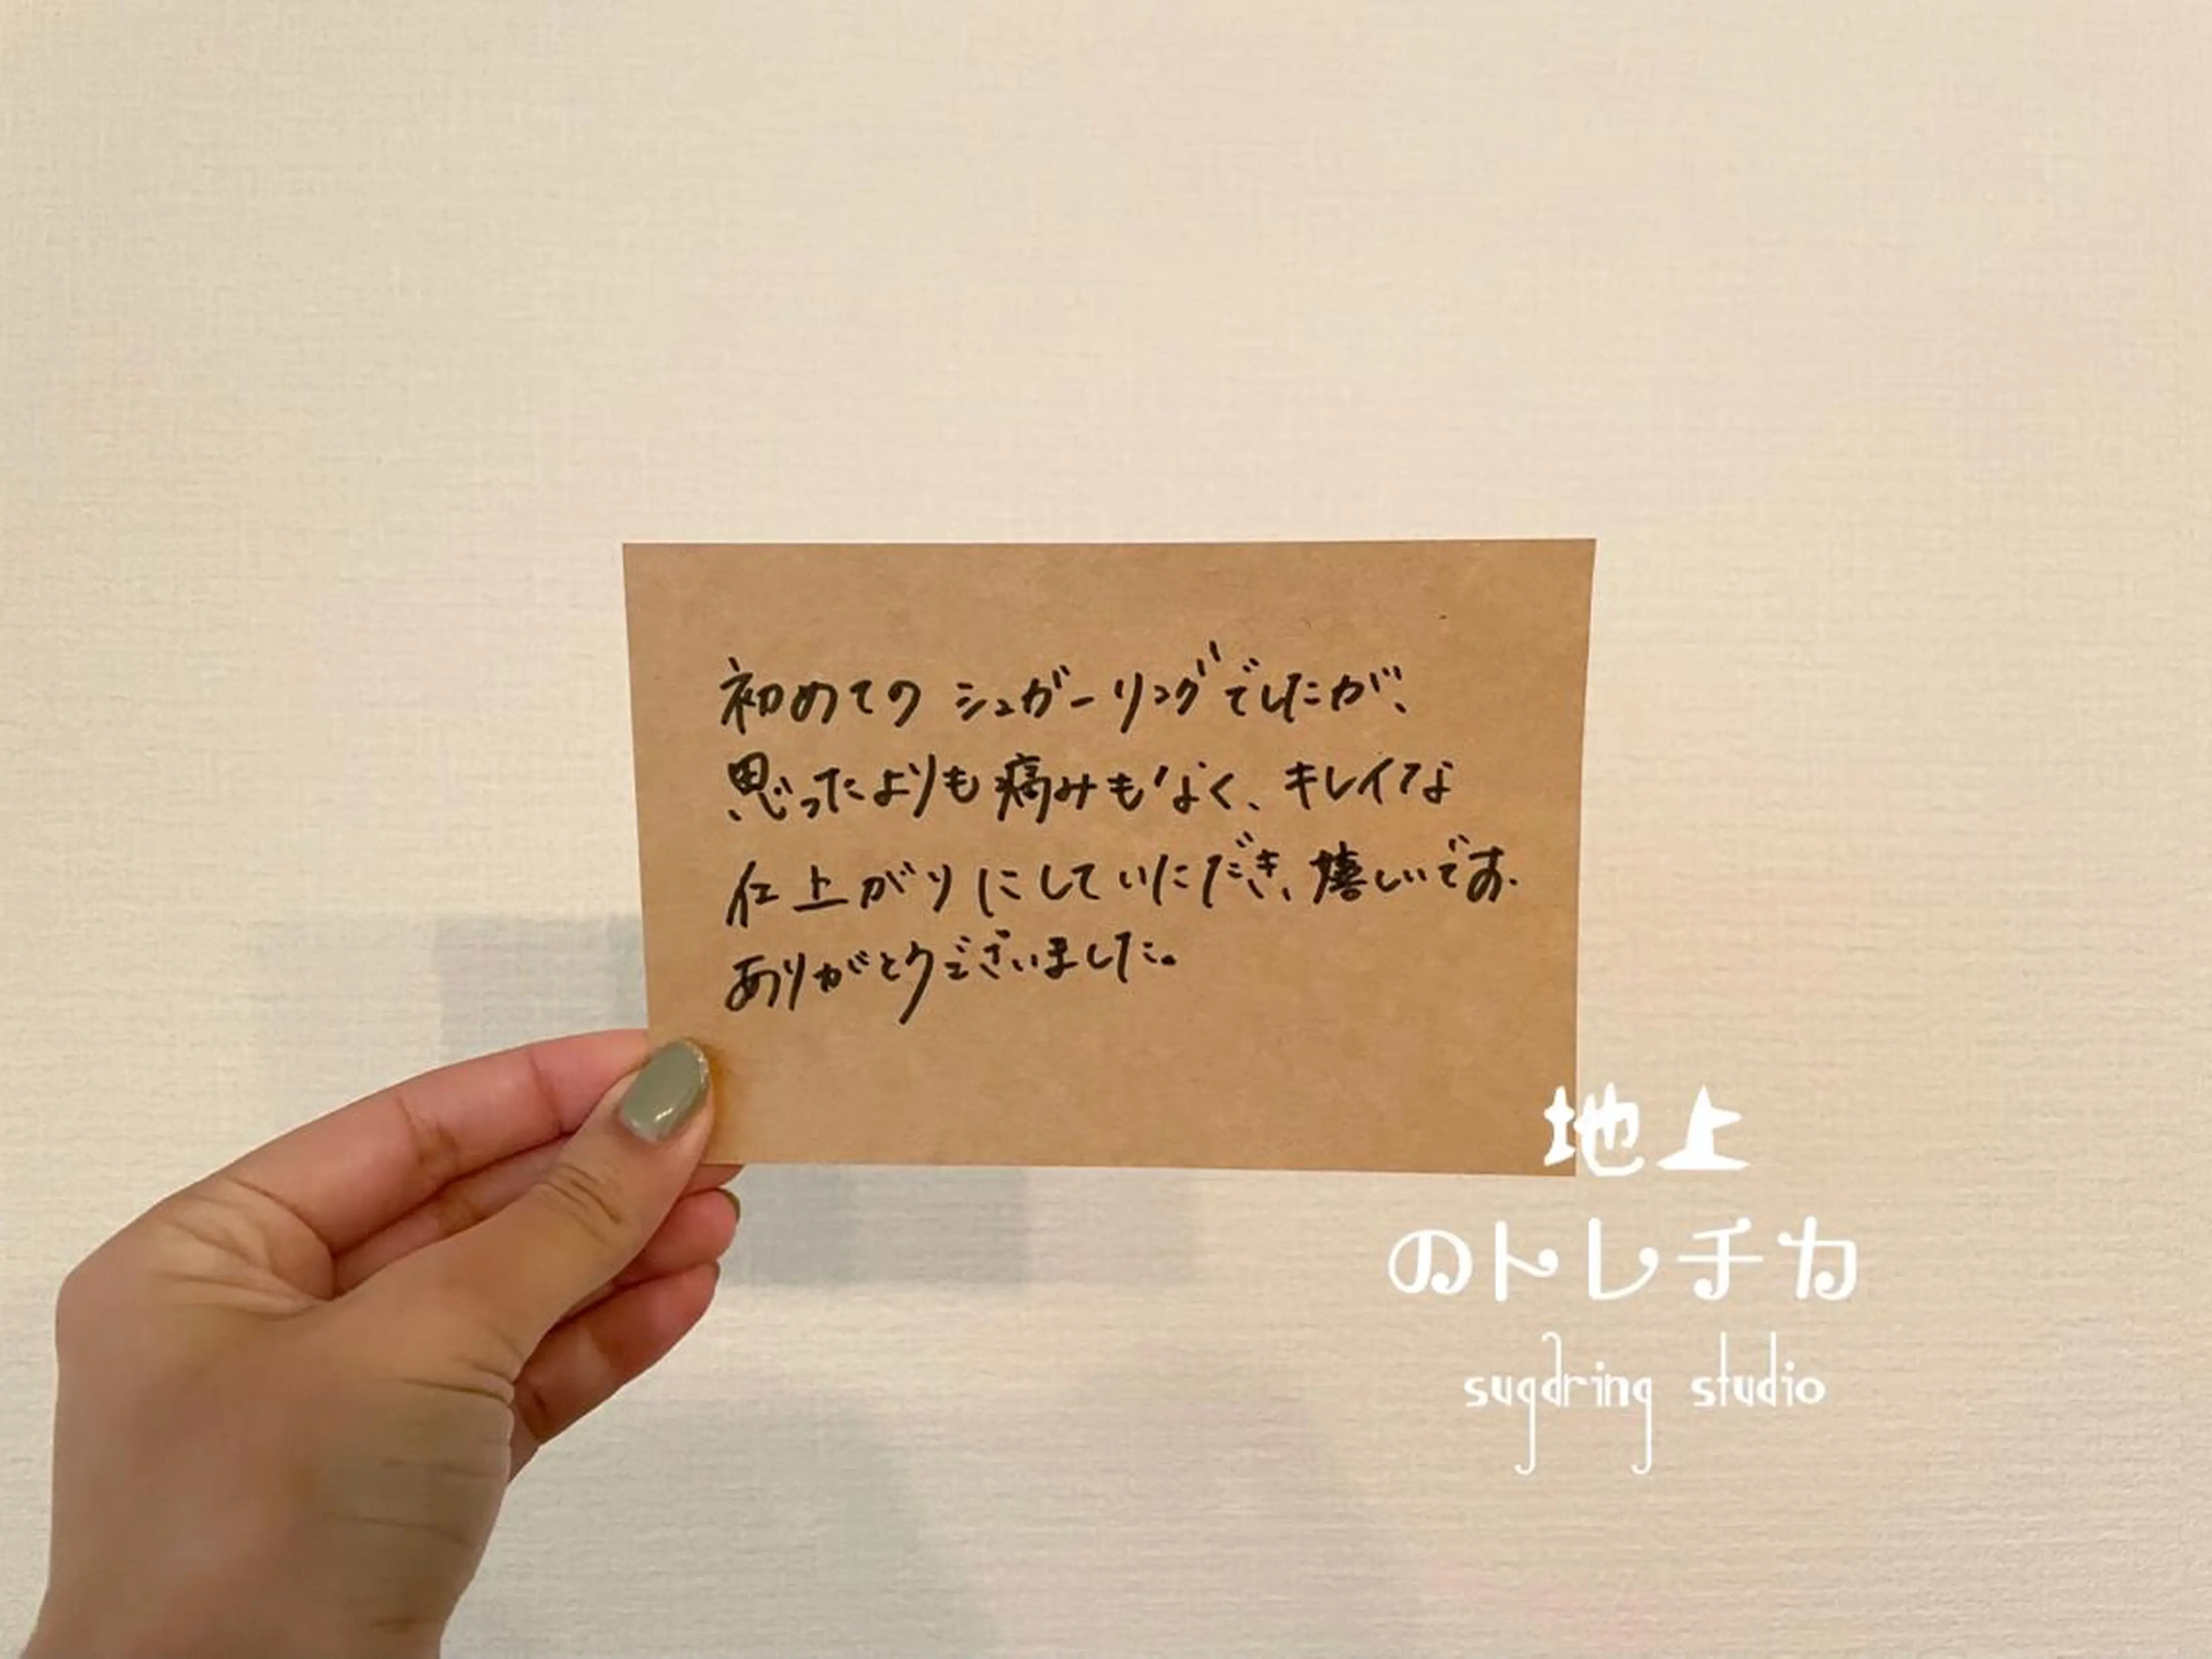 初めてのシュガーリングでしたが、
思ったよりも痛みもなく、キレイな
仕上がりにしていただき、嬉しいです.
ありがとうございました。
地上
のトレチカ
sugaring studio